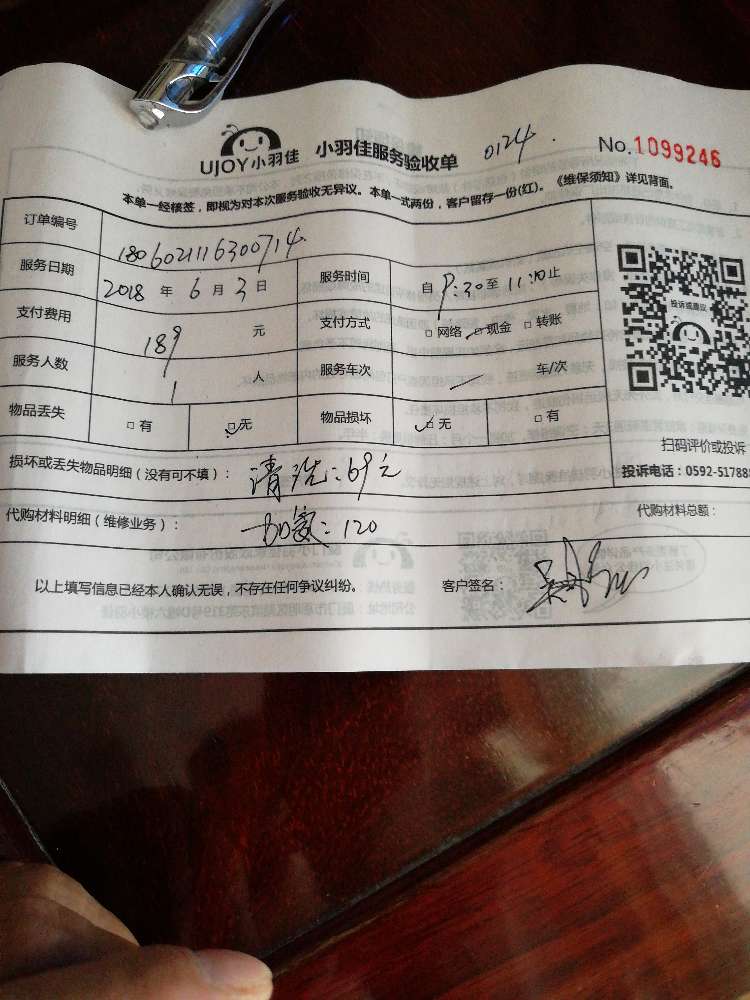 UJOY小羽佳 小羽佳服务验收单 0124 No.1099246
本单一经核签，即视为对本次服务验收无异议。本单一式两份，客户留存一份(红)。《维保须知》详见背面。
订单编号 180602116300714
服务日期 2018 年 6 月 3 日 服务时间 自 9:30 至 11:10 止
支付费用 189 元 支付方式 □网络 □现金 □转账
服务人数 1 人 服务车次 / 车/次
物品丢失 □有 ☑无 物品损坏 ☑无 □有
投诉或建议
扫码评价或投诉
投诉电话：0592-51788
损坏或丢失物品明细（没有可不填）： 清洗：69元
代购材料明细（维修业务）： 120 代购材料总额：
以上填写信息已经本人确认无误，不存在任何争议纠纷。 客户签名：